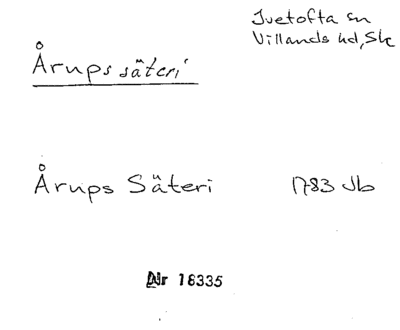 Ivetofta sn
Villands hd, Sk
Årups säteri
Årups Säteri 1783 Jb
Nr 16335